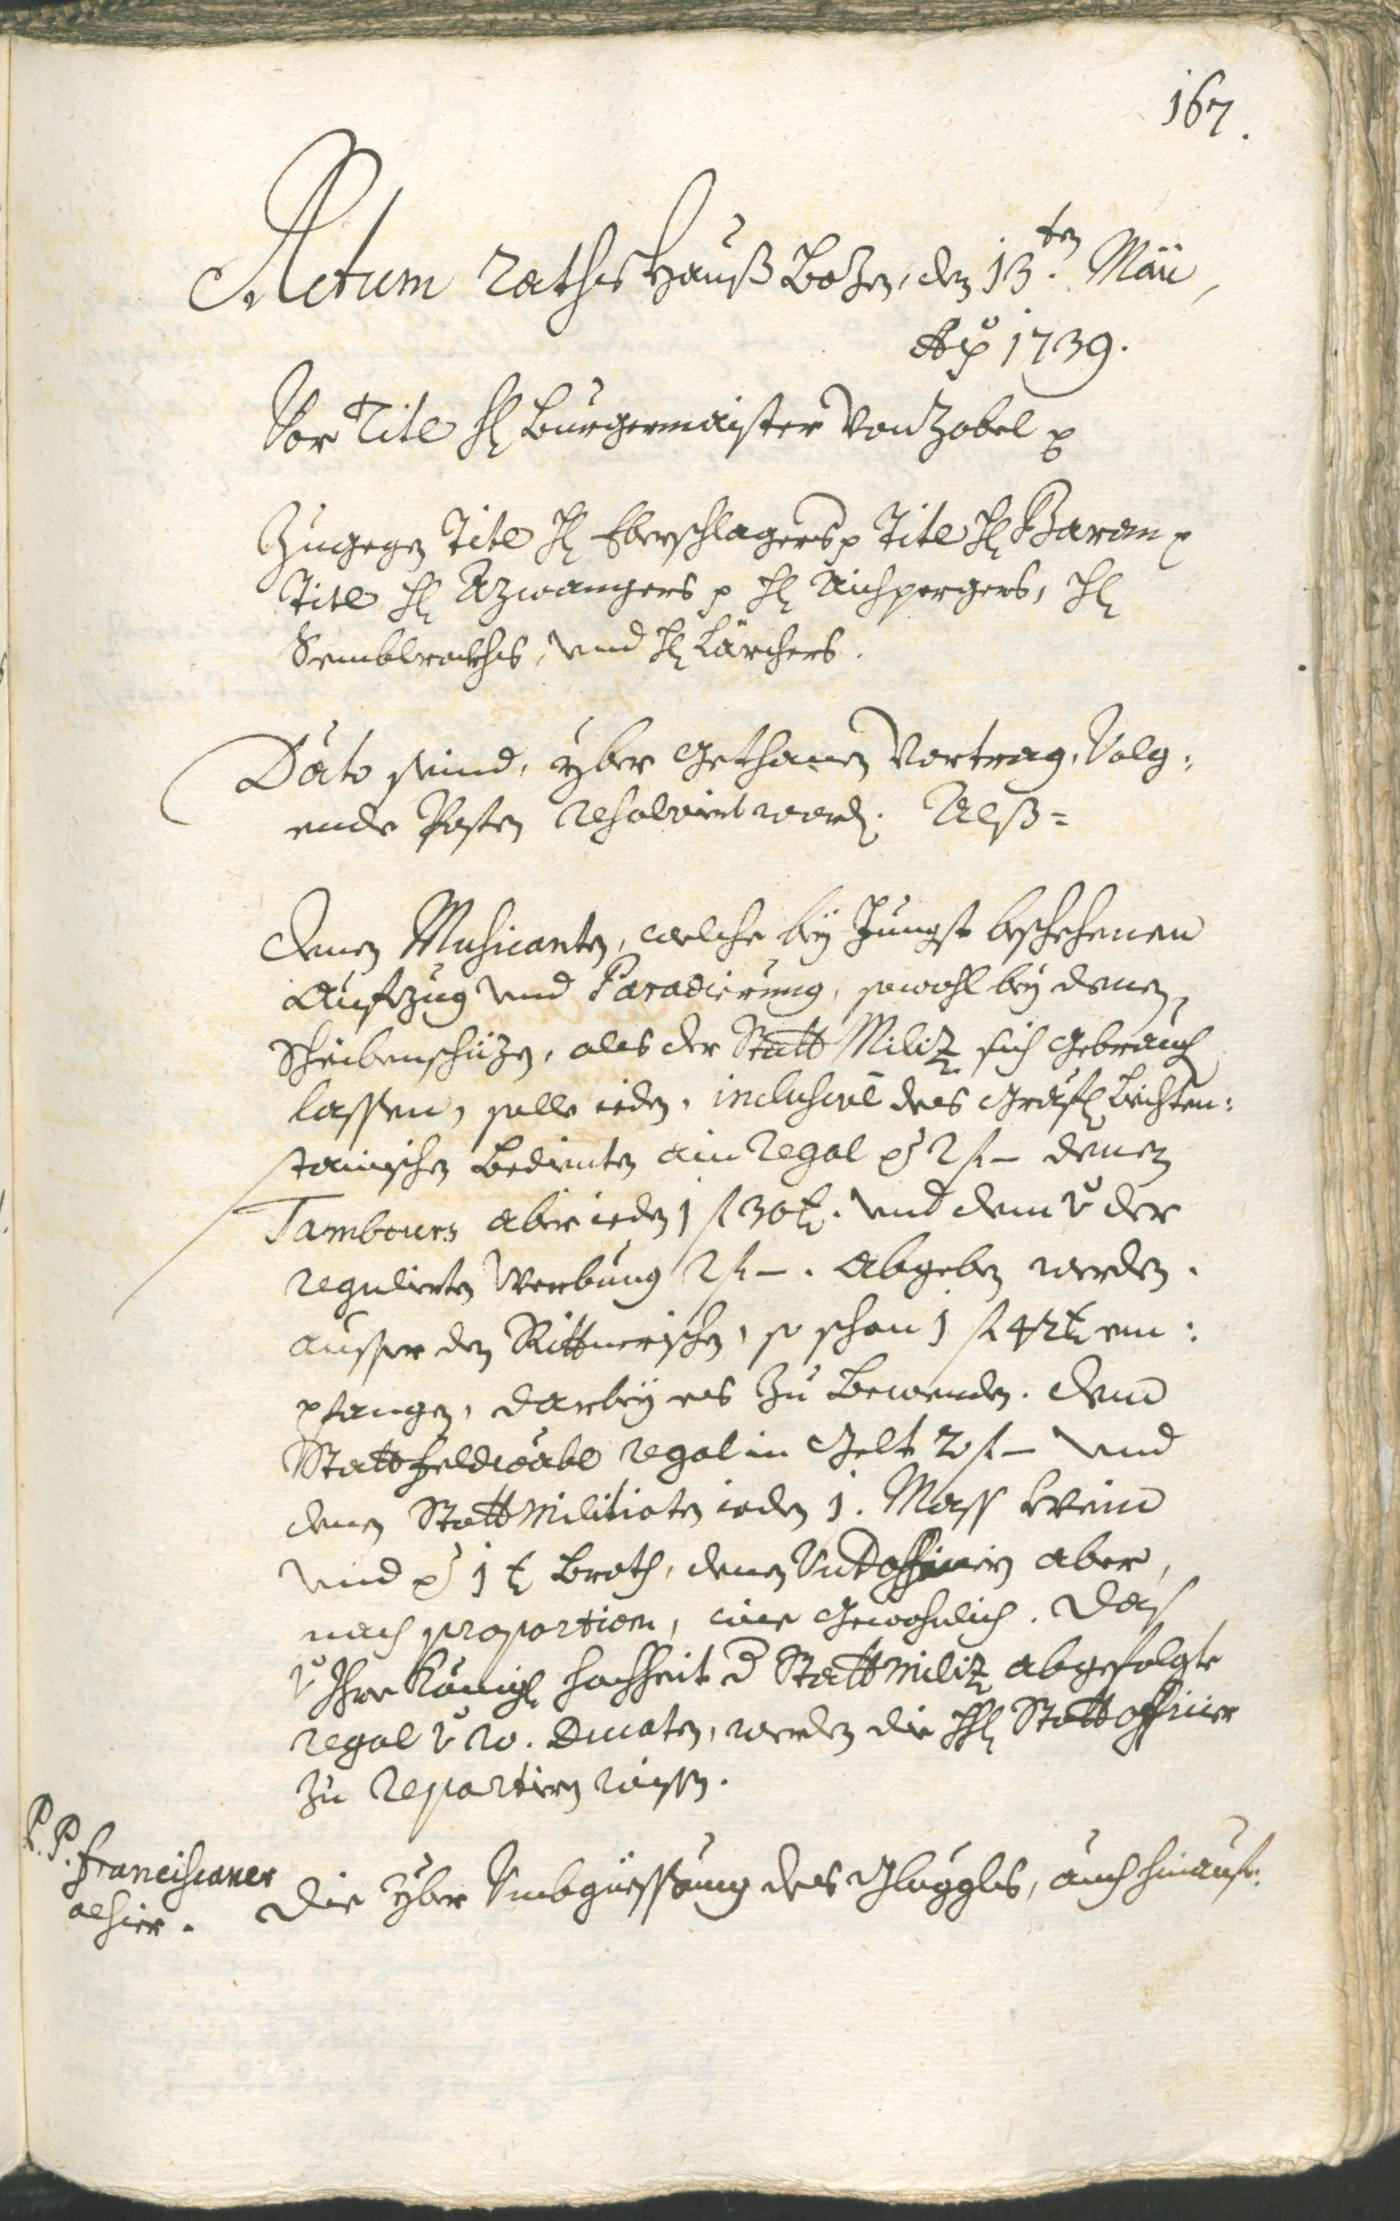 167.
Actum Rathshauß Bozen, den 13.ten Maii,
Aõ 1739.
Vor Titl H Burgermaister von Zobel p
Zugegen Titl H Eberschlagers p Titl H Baron p
Titl H Azwangers p H Aichpergers, H
Semblrockhs, und H Lärchers.
Dato seind, yber gethanen Vortrag, Volg:
ende Posten resolviert word. Alß=
denen Musicanten, welche bey jüngst beschehenen
Aufzug und Paradierung, sowohl bey denen
Scheibenschüzen, als der Statt Miliz sich gebrauch
lassen, solle ieden, inclusivè des Gräfl Liechten:
stainischen Bedienten ain Regal p 2 f – denen
Tambours aber ieden 1 f 30 x. und dem v der
regulierten Werbung 2 f –. abgeben werden.
ausser den Rittnerischen, so schon 1 f 42 x em:
pfangen, darbey es zu bewenden. dem
Stattfeldwäbl Regal in Gelt 2 f – und
denen Stattmilitioten ieden 1. Mass Wein
und p 1 x Broth, denen Undofficiern aber,
nach proportion, wie gewohnlich. Das
v Ihre Königl Hochheit d Stattmiliz abgefolgte
Regal v 20. Ducaten, werden die HH Stattofficier
zu repartiern wissen.
P. P. Franciscaner
alhier.
Die yber Umbgüessung des Gloggls, auch hinauf: